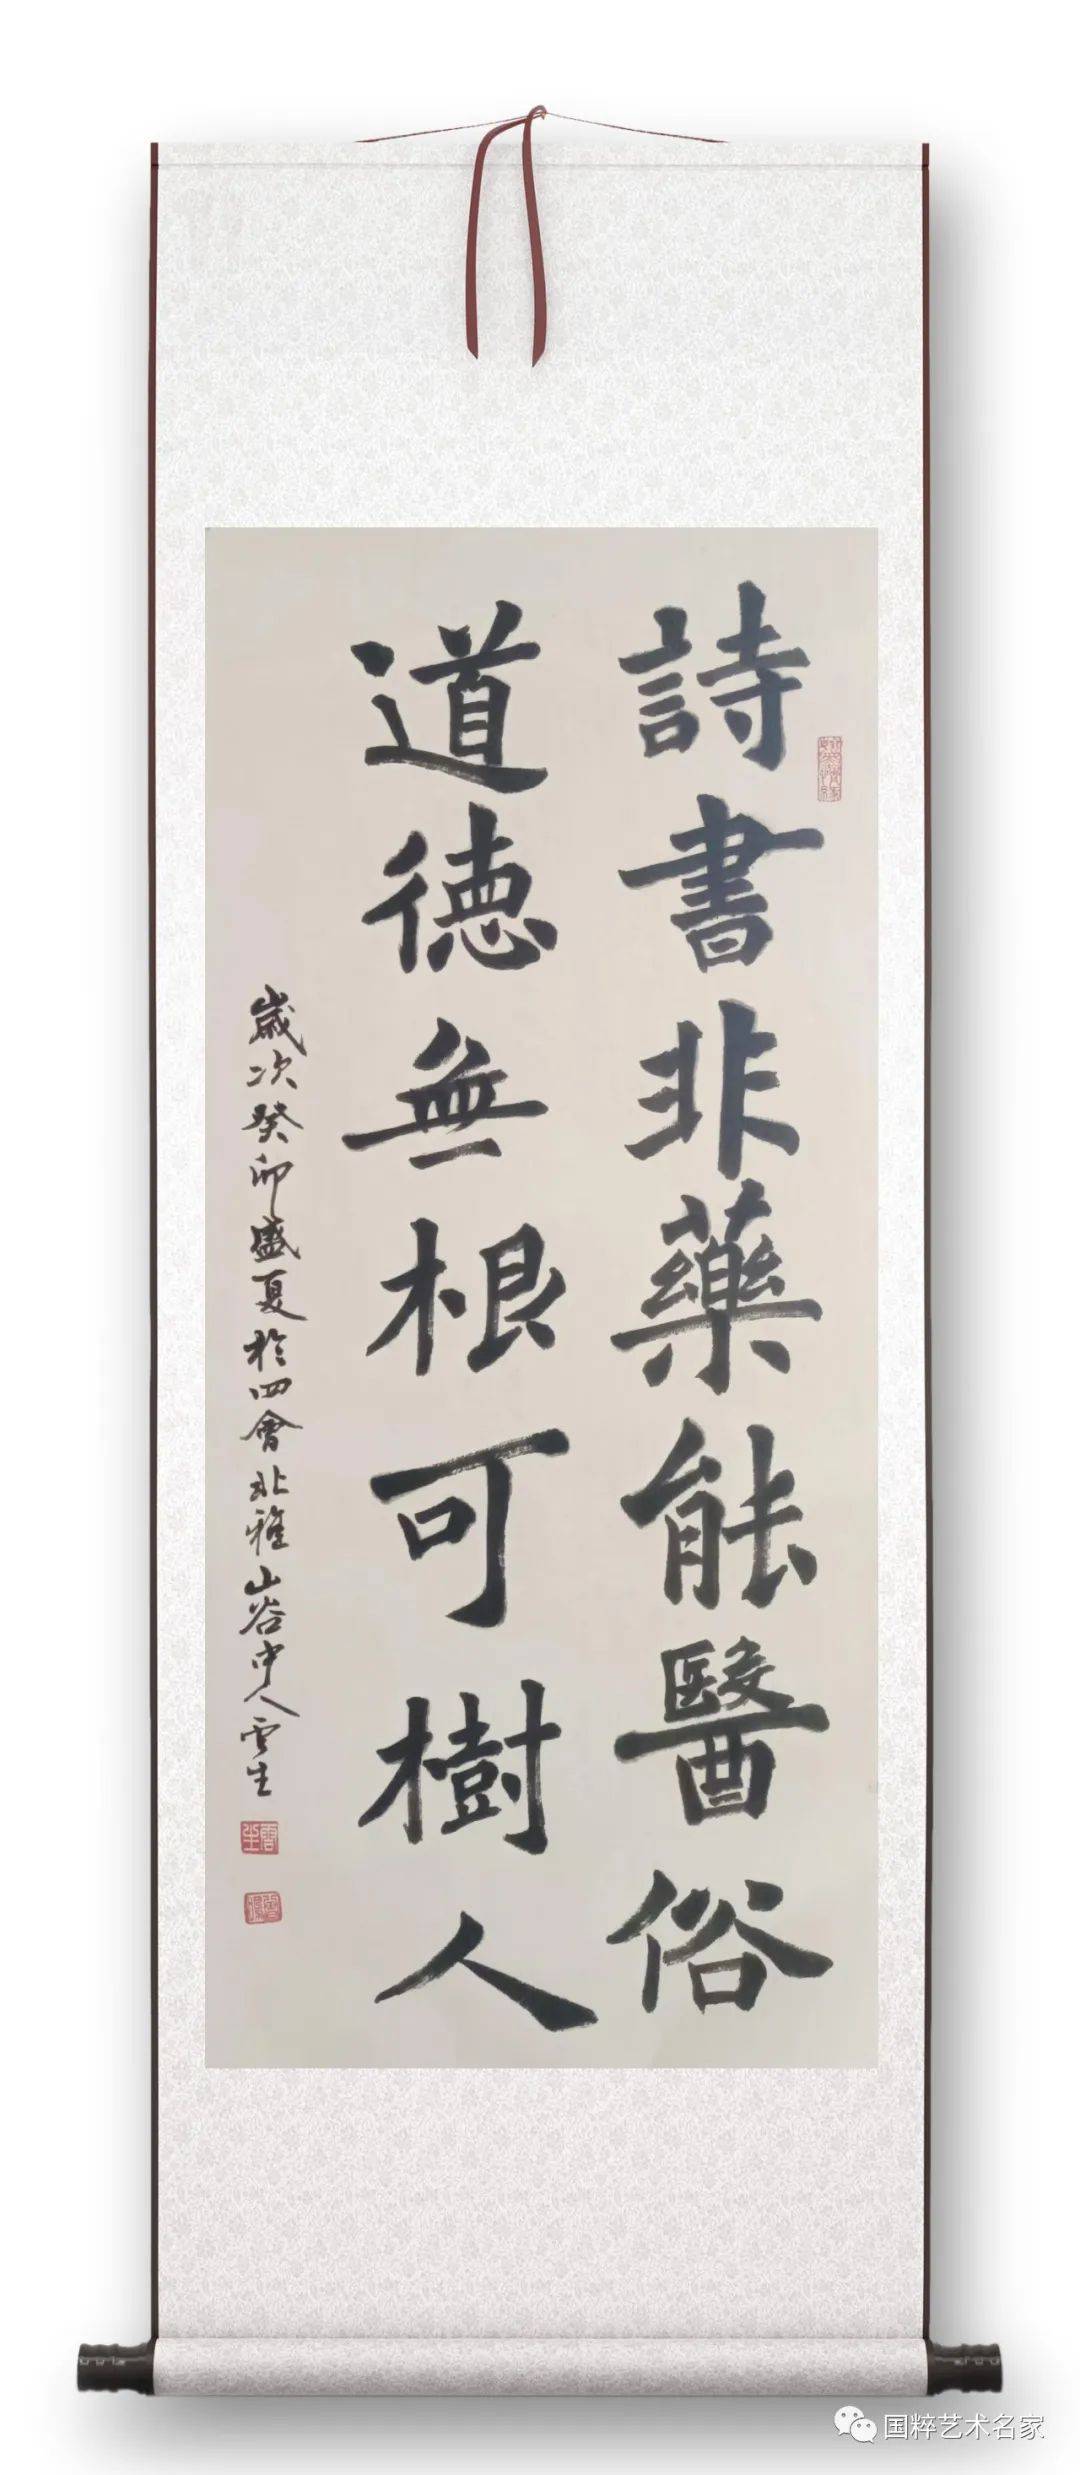 詩書非藥能醫俗
道德無根可樹人
歲次癸卯盛夏於四會北雅山谷中人雲生
雲生
国粹艺术名家